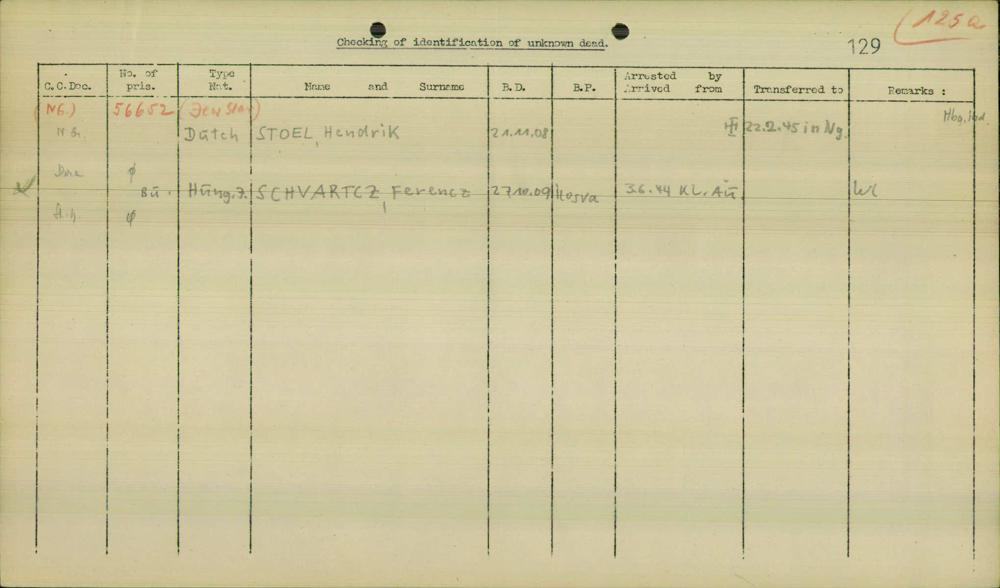 125a
129
Checking of identification of unknown dead.
C.C.Doc. No. of pris. Type Nat. Name and Surname B.D. B.P. Arrested by Arrived from Transferred to Remarks :
(NG.) 56652 (Jew Star)
N.G. Dutch STOEL, Hendrik 21.11.08 22.2.45 in Ng.
Dora φ
Bu. Hung.J. SCHVARTCZ, Ferencz 27.10.09 Hosva 3.6.44 KL. Au.
φ